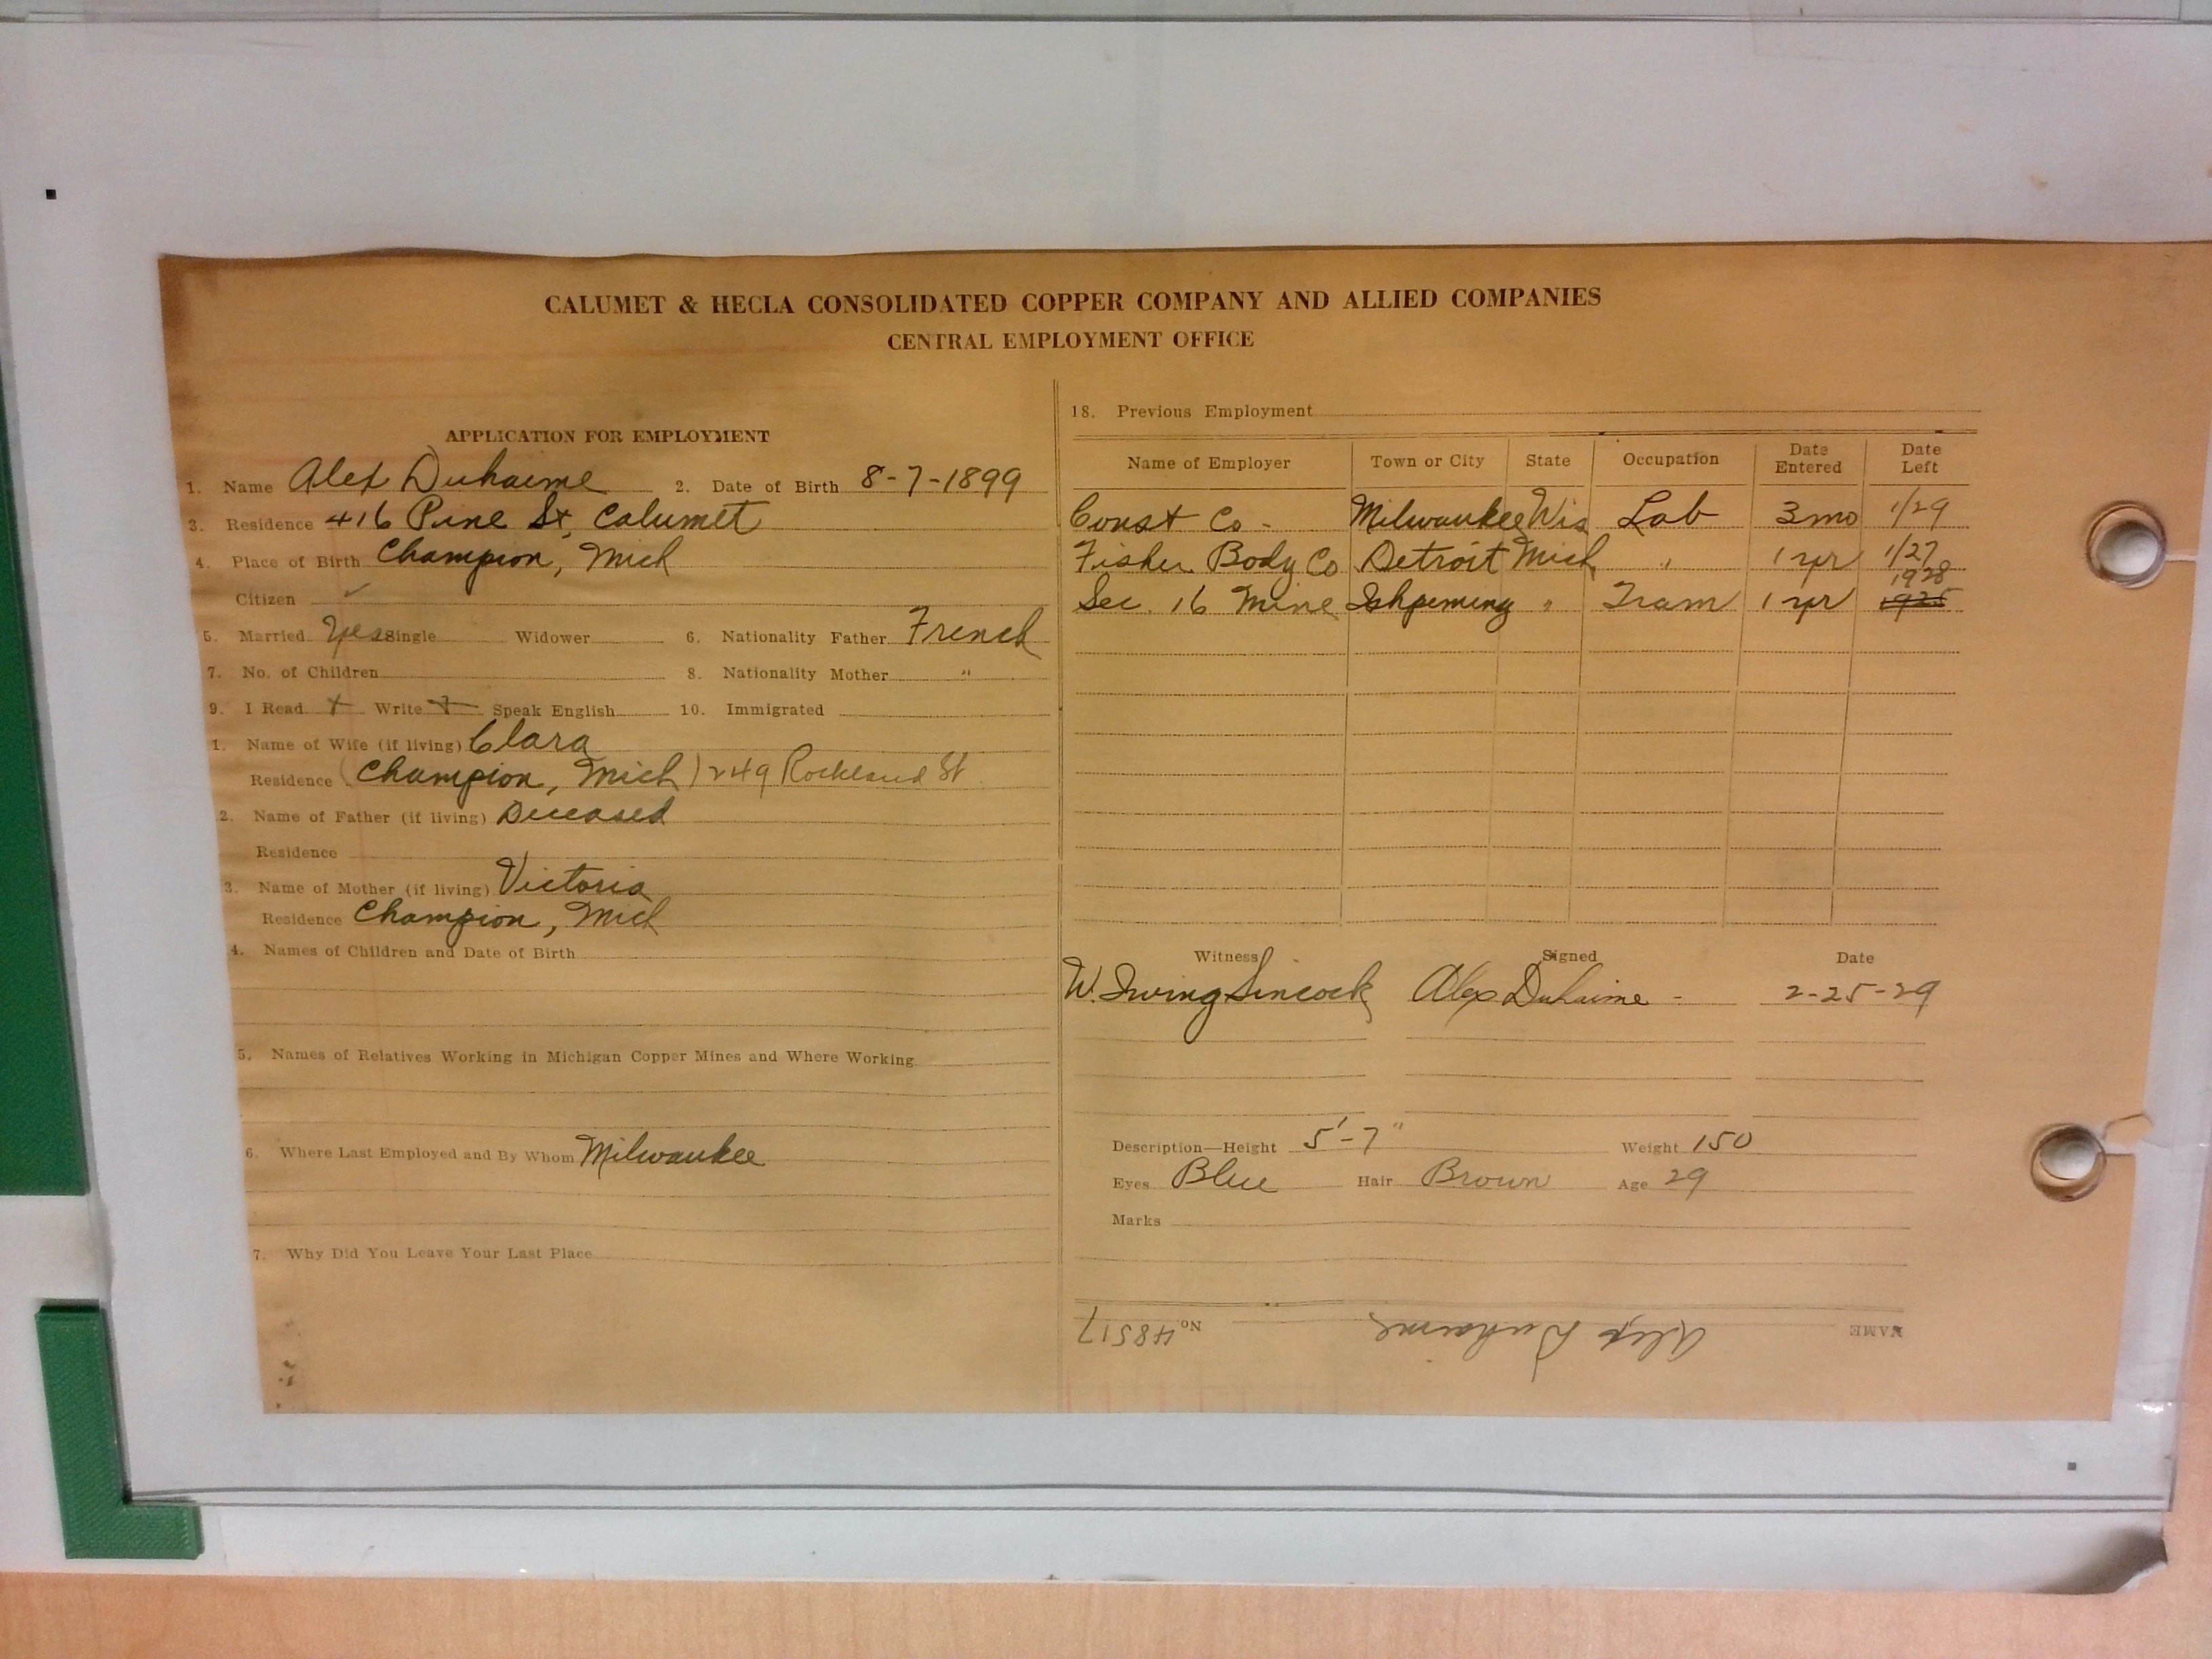 CALUMET & HECLA CONSOLIDATED COPPER COMPANY AND ALLIED COMPANIES
CENTRAL EMPLOYMENT OFFICE
APPLICATION FOR EMPLOYMENT
1. Name Alex Duhaime 2. Date of Birth 8-7-1899
3. Residence 416 Pine St, Calumet
4. Place of Birth Champion, Mich
Citizen ✓
5. Married Yes Single Widower 6. Nationality Father French
7. No. of Children 8. Nationality Mother "
9. I Read + Write + Speak English 10. Immigrated
1. Name of Wife (if living) Clara
Residence (Champion, Mich) 249 Rockland St
2. Name of Father (if living) Deceased
Residence
3. Name of Mother (if living) Victoria
Residence Champion, Mich
4. Names of Children and Date of Birth
5. Names of Relatives Working in Michigan Copper Mines and Where Working
6. Where Last Employed and By Whom Milwaukee
7. Why Did You Leave Your Last Place
18. Previous Employment
Name of Employer Town or City State Occupation Date Entered Date Left
Const Co - Milwaukee Wis Lab 3 mo 1/29
Fisher Body Co Detroit Mich " 1 yr 1/27
1928
Sec. 16 Mine Ishpeming " Tram 1 yr 1925
Witness Signed Date
W. Irving Sincock Alex Duhaime - 2-25-29
Description—Height 5'-7" Weight 150
Eyes Blue Hair Brown Age 29
Marks
NAME Alex Duhaime No. 48517